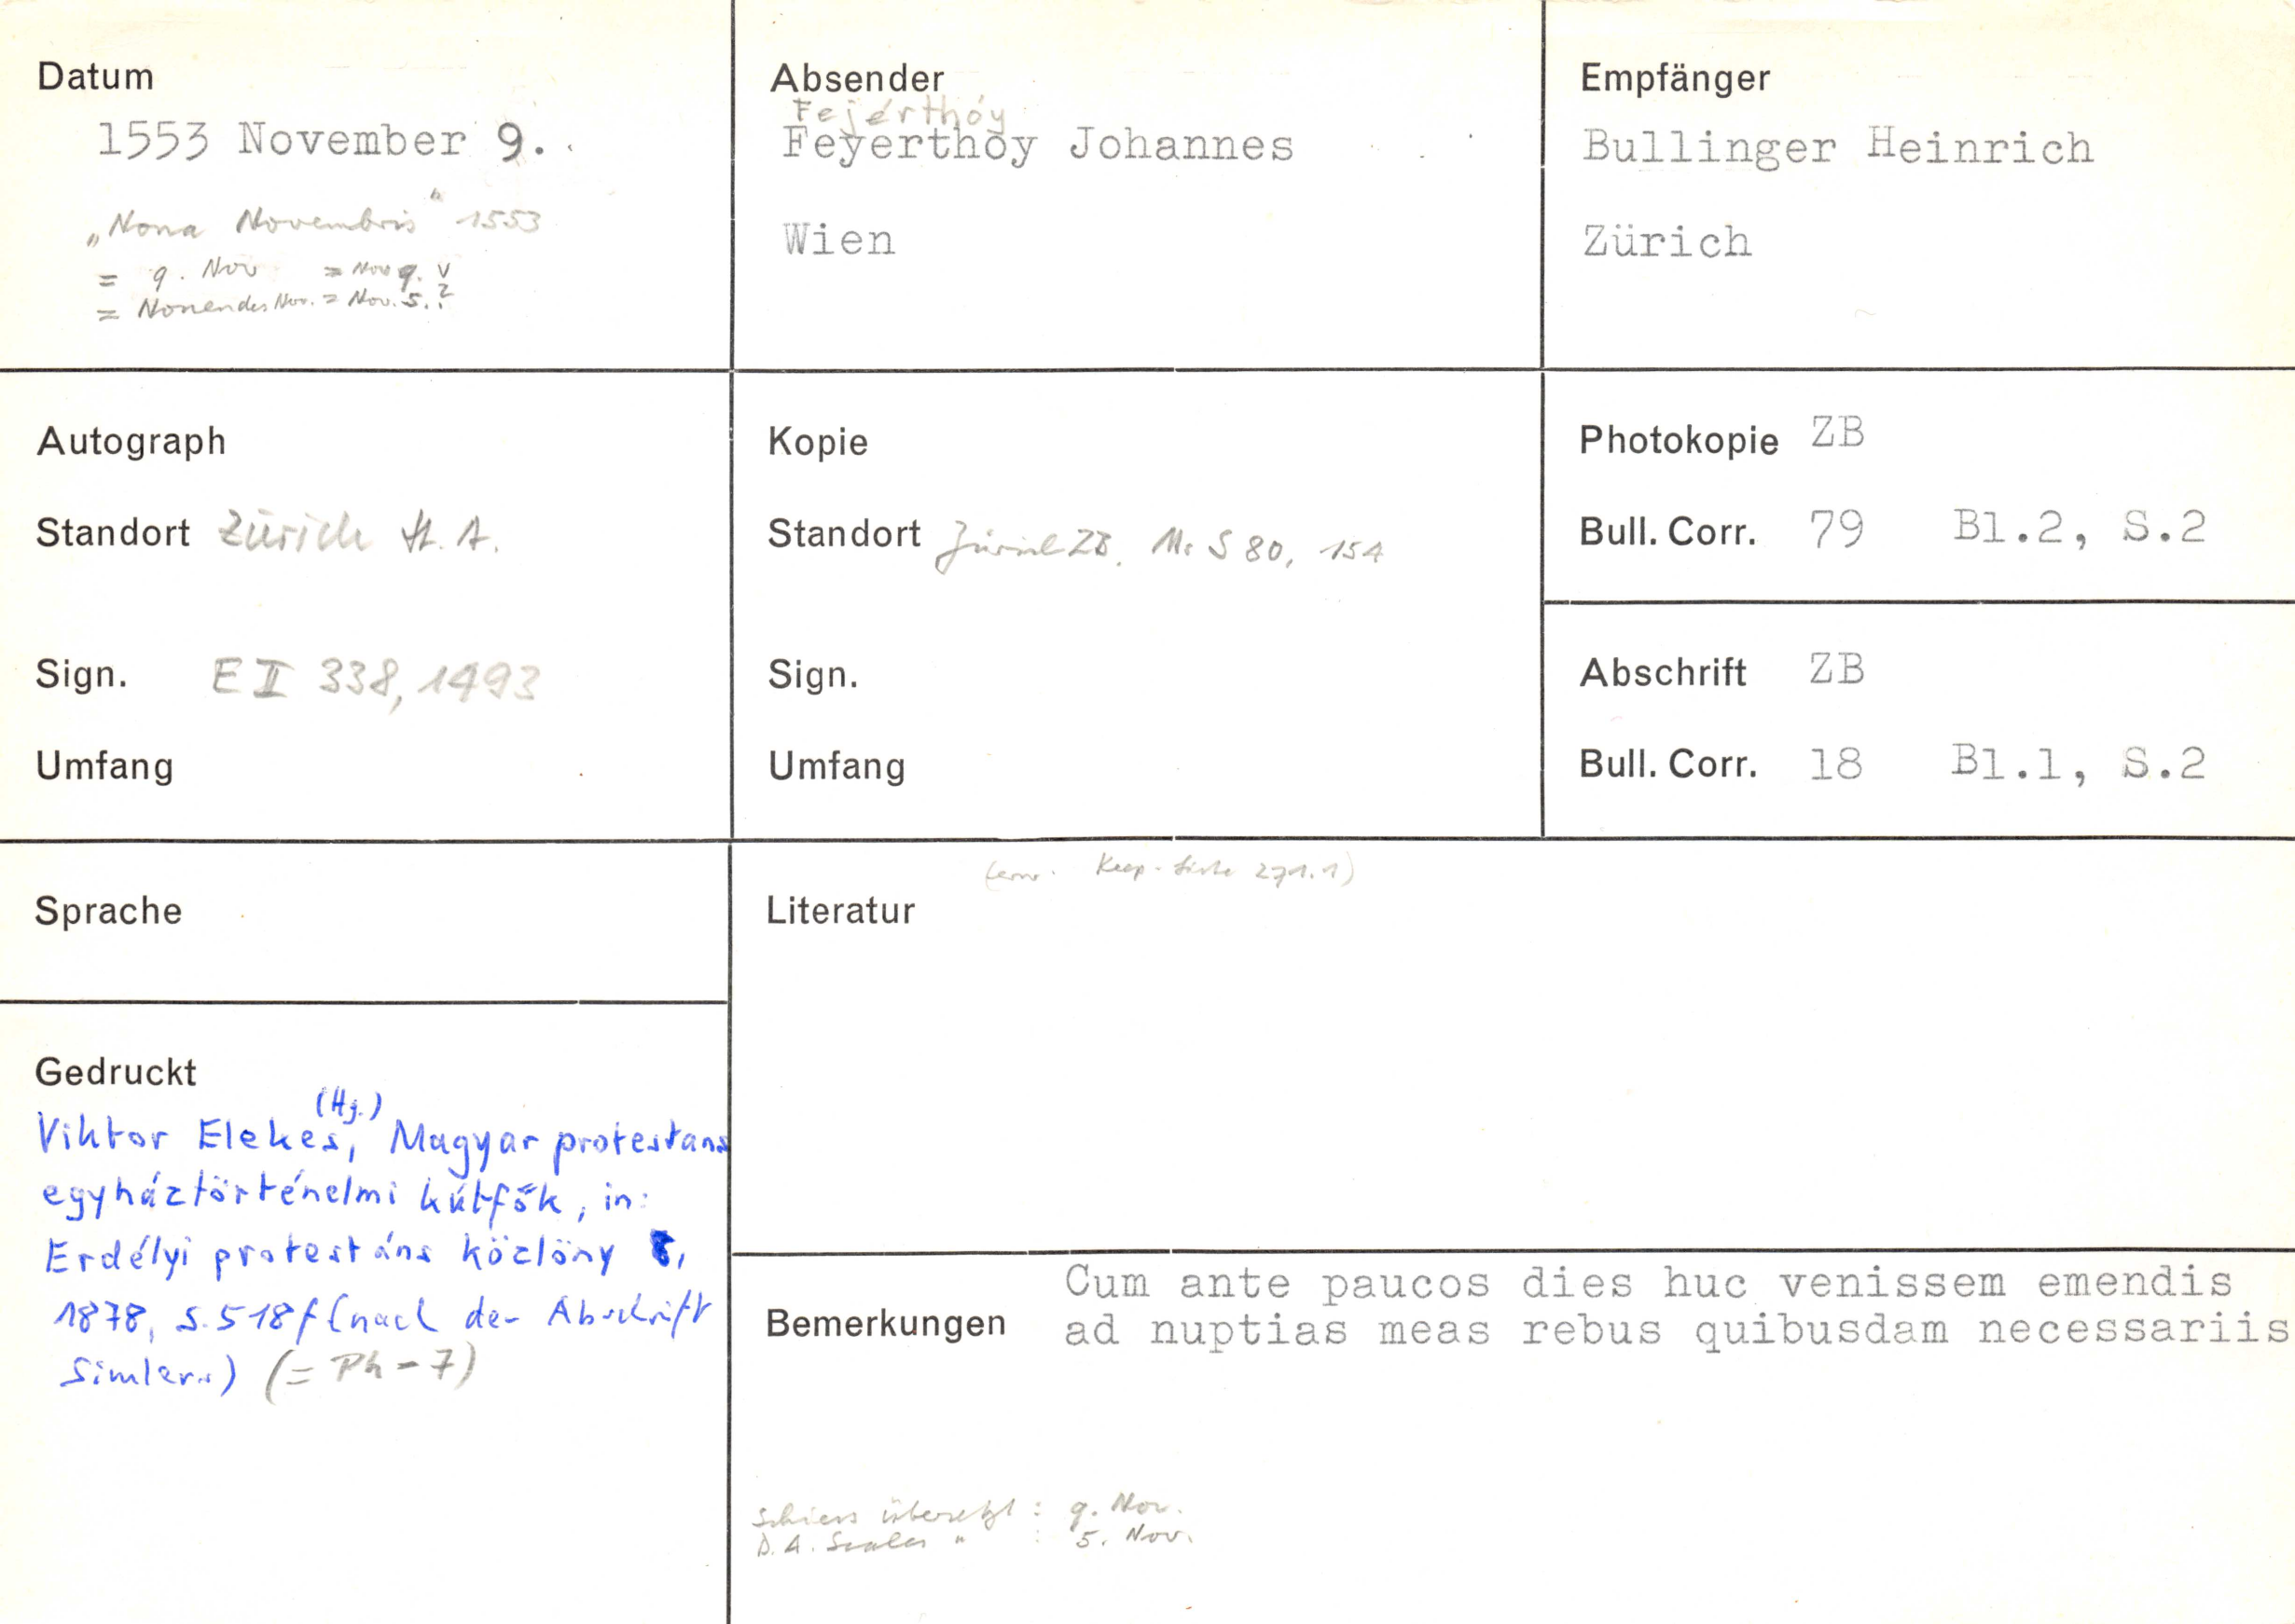 Datum
1553 November 9.
„Nona Novembris" 1553
= 9. Nov = Nov 9. v
= Nonen des Nov. = Nov. 5. ?
Absender
Fejérthóy
Feyerthoy Johannes
Wien
Empfänger
Bullinger Heinrich
Zürich
Autograph
Standort Zürich St. A.
Sign. E II 338, 1493
Umfang
Kopie
Standort Zürich ZB, Ms S 80, 154
Sign.
Umfang
Photokopie ZB
Bull. Corr. 79 Bl.2, S.2
Abschrift ZB
Bull. Corr. 18 Bl.1, S.2
Sprache
Gedruckt
(Hg.)
Viktor Elekes, Magyar protestans
egyháztörténelmi kútfők, in:
Erdélyi protestáns közlöny 8,
1878, S. 518f (nach der Abschrift
Simlers) (= Ph - 7)
271.1)
Literatur
Bemerkungen
Cum ante paucos dies huc venissem emendis
ad nuptias meas rebus quibusdam necessariis
Schiess übersetzt : 9. Nov.
D. A. " : 5. Nov.